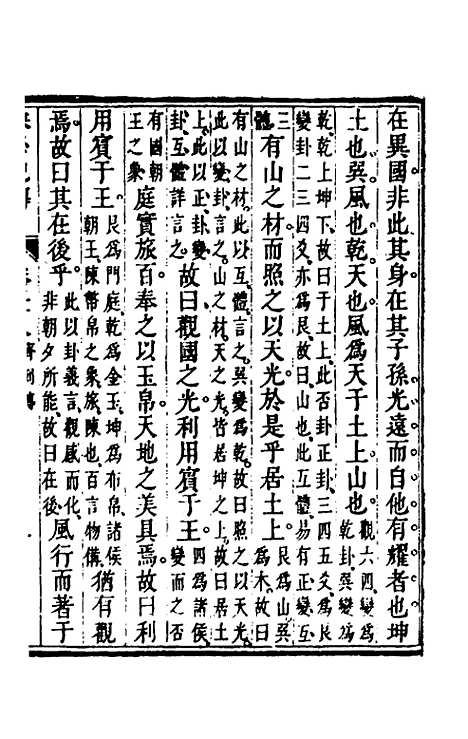 在異國非此其身在其子孫光遠而自他有耀者也坤
土也巽風也乾天也風爲天于土上山也觀六四變爲乾卦巽變爲
乾乾上坤下故曰于土上此否卦正卦三四五爻爲艮變卦二三四爻亦爲艮故曰山也此互體易有正變互
三體有山之材而照之以天光於是乎居土上艮爲山巽爲木故曰
有山之材此以互體言之巽變乾故曰照之以天光此以變卦言之山之材天之光皆居坤土之上故曰居土
上此以正卦變卦互體詳言之故曰觀國之光利用賓于王四爲諸侯變而之否
有國朝王之象庭實旅百奉之以玉帛天地之美具焉故曰利
用賓于王艮爲門庭乾爲金玉坤爲布帛諸侯朝王陳幣帛之象旅陳也百言物備猶有觀
焉故曰其在後乎此以卦義言觀感而化非朝夕所能故曰在後風行而著于